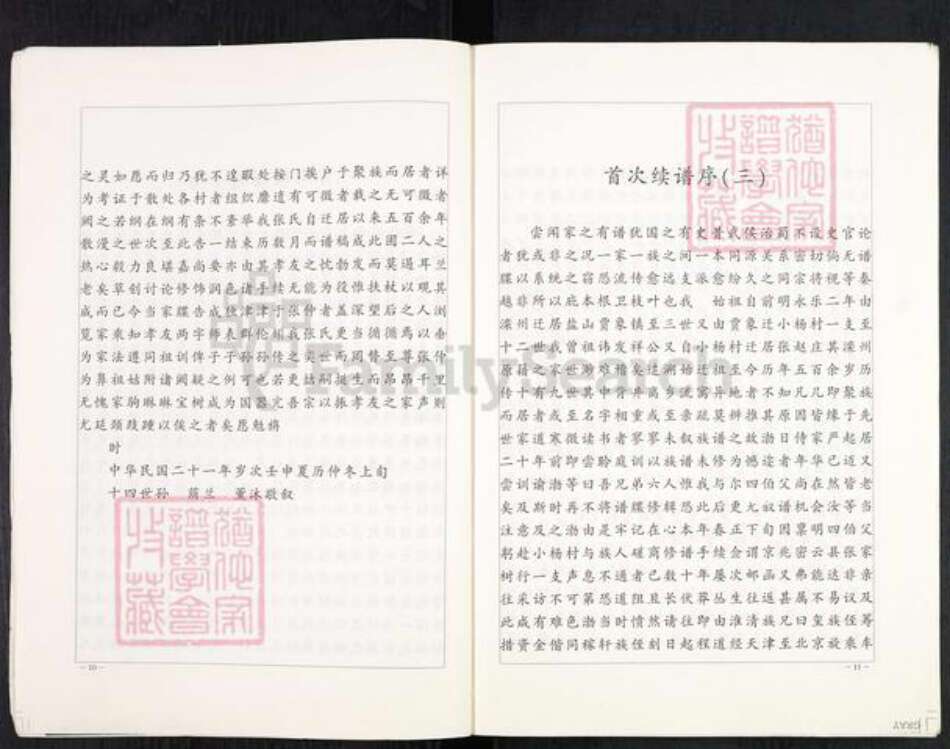 之灵如愿而归乃犹不遑暇处按门挨户于聚族而居者详
为考证于散处各村者组织磨遗有可徵者载之无可徵者
阙之若纲在纲有条不紊举我张氏自迁居以来五百余年
散漫之世次至此告一结束历数月而谱稿成此固二人之
热心毅力良堪嘉尚要亦由其孝友之忱勃发而莫遏耳兰
老矣草创讨论修饰润色诸手续无能为役惟扶杖以观其
成而已今当家牒告成独津津于张仲者盖深望后之人浏
览家乘知孝友两字师表群伦则我张氏更当循循焉以垂
为家法遵同祖训俾子子孙孙传之奕世而罔替至尊张仲
为鼻祖姑附诸阙疑之例可也若更诘嗣挺生而昂昂千里
无愧家驹琳琳宝树成为国器完吾宗以振孝友之家声则
尤延颈跂踵以俟之者矣愿勉旃
时
中华民国二十一年岁次壬申夏历仲冬上旬
十四世孙 蓊兰 董沐敬叙
- 10 -
首次续谱序(三)
尝闻家之有谱犹国之有史昔武侯治蜀不设史官论
者犹或非之况一家一族之间一本同源关系密切倘无谱
牒以系统之窃恐流传愈远支派愈纷久之同宗将视等秦
越非所以庇本根卫枝叶也我 始祖自前明永乐二年由
滦州迁居盐山贾象镇至三世又由贾象迁小杨村一支至
十二世我曾祖讳发祥公又自小杨村迁居张赵庄其滦州
原籍之家世渺难稽矣遑溯始迁祖至今历年五百余岁历
传十有九世其中背井离乡流寓异地者不知凡几即聚族
而居者或至名字相重或至亲疏莫辨推其原因皆缘于先
世家道寒微读书者寥寥未叙族谱之故渤日侍家严起居
二十年前即尝聆庭训以族谱未修为憾迨者年华已迈又
尝训谕渤等曰吾兄弟六人惟我与尔四伯父尚在然皆老
矣及斯时再不将谱牒修辑恐此后更尤叙谱机会汝等当
注意及之渤由是牢记在心本年春正下旬因禀明四伯父
躬赴小杨村与族人磋商修谱手续佥谓京兆密云县张家
树行一支声息不通者已数十年屡次邮函又弗能达非亲
往采访不可第恐道阻且长伏莽丛生往返甚属不易议及
此咸有难色渤当时愤然请往即由淮清族兄曰玺族侄筹
措资金偕同稼轩族侄刻日起程道经天津至北京旋乘车
- 11 -
FamilySearch